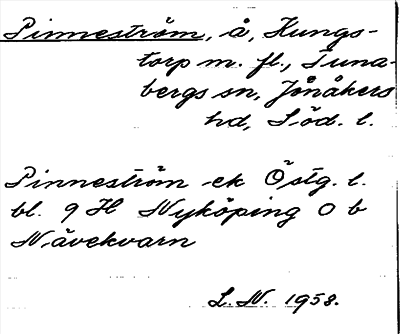 Pinneström, å, Kungs-
torp m. fl., Tuna-
bergs sn, Jönåkers
hd, Söd. l.
Pinneström ek Östg. l.
bl. 9 H Nyköping O b
Nävekvarn
L. N. 1958.